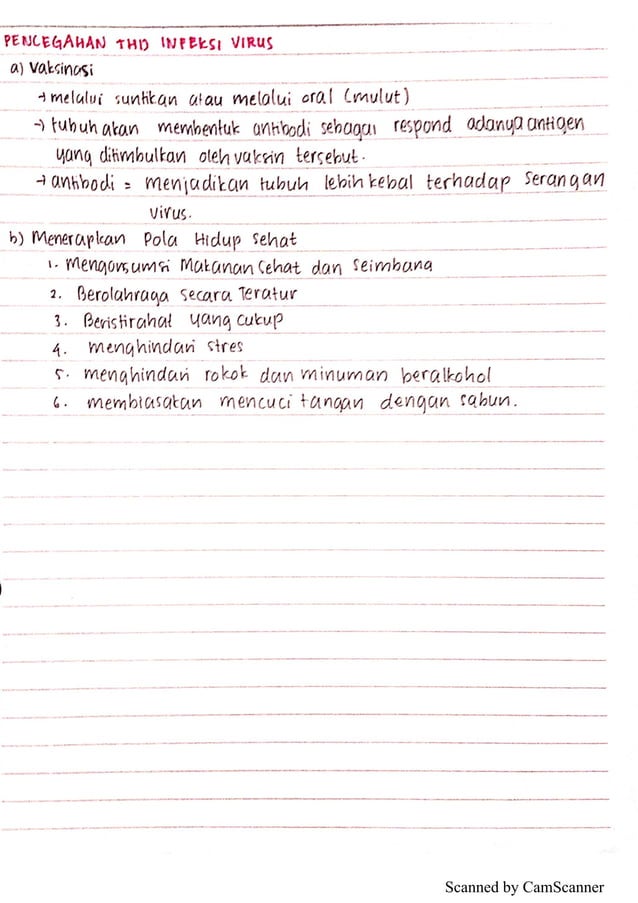 PENCEGAHAN THD INFEKSI VIRUS
a) Vaksinasi
→ melalui suntikan atau melalui oral (mulut)
→ tubuh akan membentuk antibodi sebagai respond adanya antigen
yang ditimbulkan oleh vaksin tersebut.
→ antibodi = menjadikan tubuh lebih kebal terhadap serangan
virus.
b) Menerapkan Pola Hidup Sehat
1. Mengonsumsi Makanan Sehat dan Seimbang
2. Berolahraga Secara Teratur
3. Beristirahat yang cukup
4. menghindari stres
5. menghindari rokok dan minuman beralkohol
6. membiasakan mencuci tangan dengan sabun.
Scanned by CamScanner